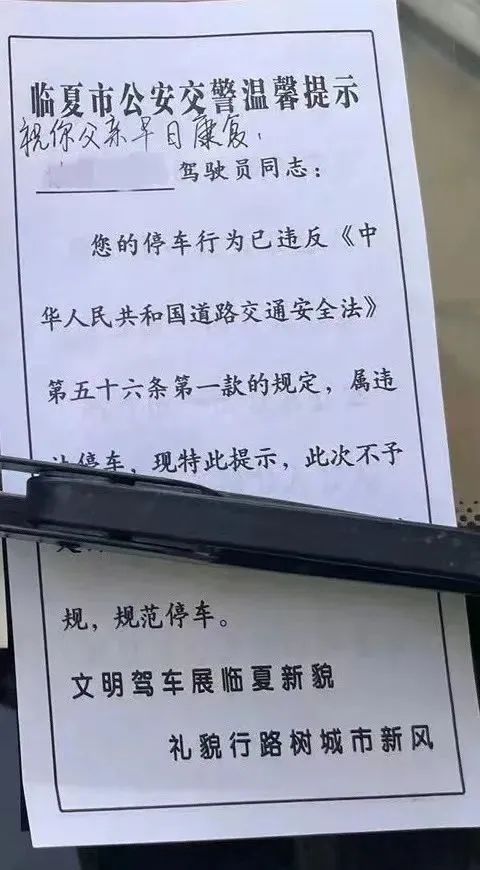 临夏市公安交警温馨提示
祝你父亲早日康复!
驾驶员同志：
您的停车行为已违反《中
华人民共和国道路交通安全法》
第五十六条第一款的规定，属违
停车，现特此提示，此次不予
规，规范停车。
文明驾车展临夏新貌
礼貌行路树城市新风